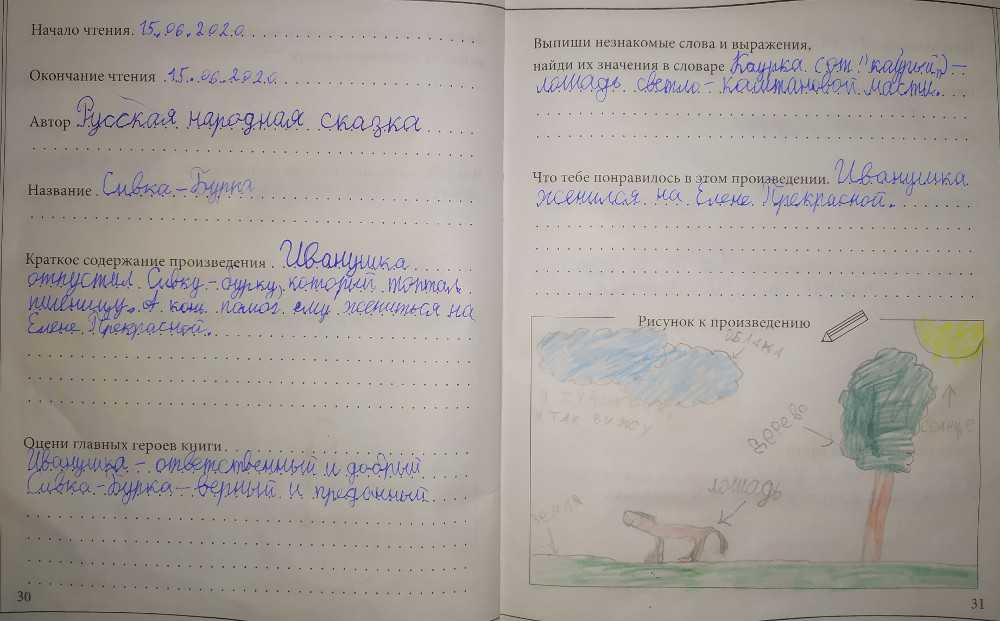 Начало чтения. 15.06.2020
Окончание чтения. 15.06.2020
Автор Русская народная сказка
Название. Сивка-Бурка
Краткое содержание произведения. Иванушка
отпустил Сивку-бурку, который топтал
пшеницу. А конь помог ему жениться на
Елене Прекрасной.
Оцени главных героев книги.
Иванушка - ответственный и добрый
Сивка-Бурка - верный и преданный
30
Выпиши незнакомые слова и выражения,
найди их значения в словаре Каурка (от "каурый") -
лошадь светло-каштановой масти.
Что тебе понравилось в этом произведении. Иванушка
женился на Елене Прекрасной.
Рисунок к произведению
ОБЛАКА
Я ТАК ВИЖУ
дерево
солнце
земля
31